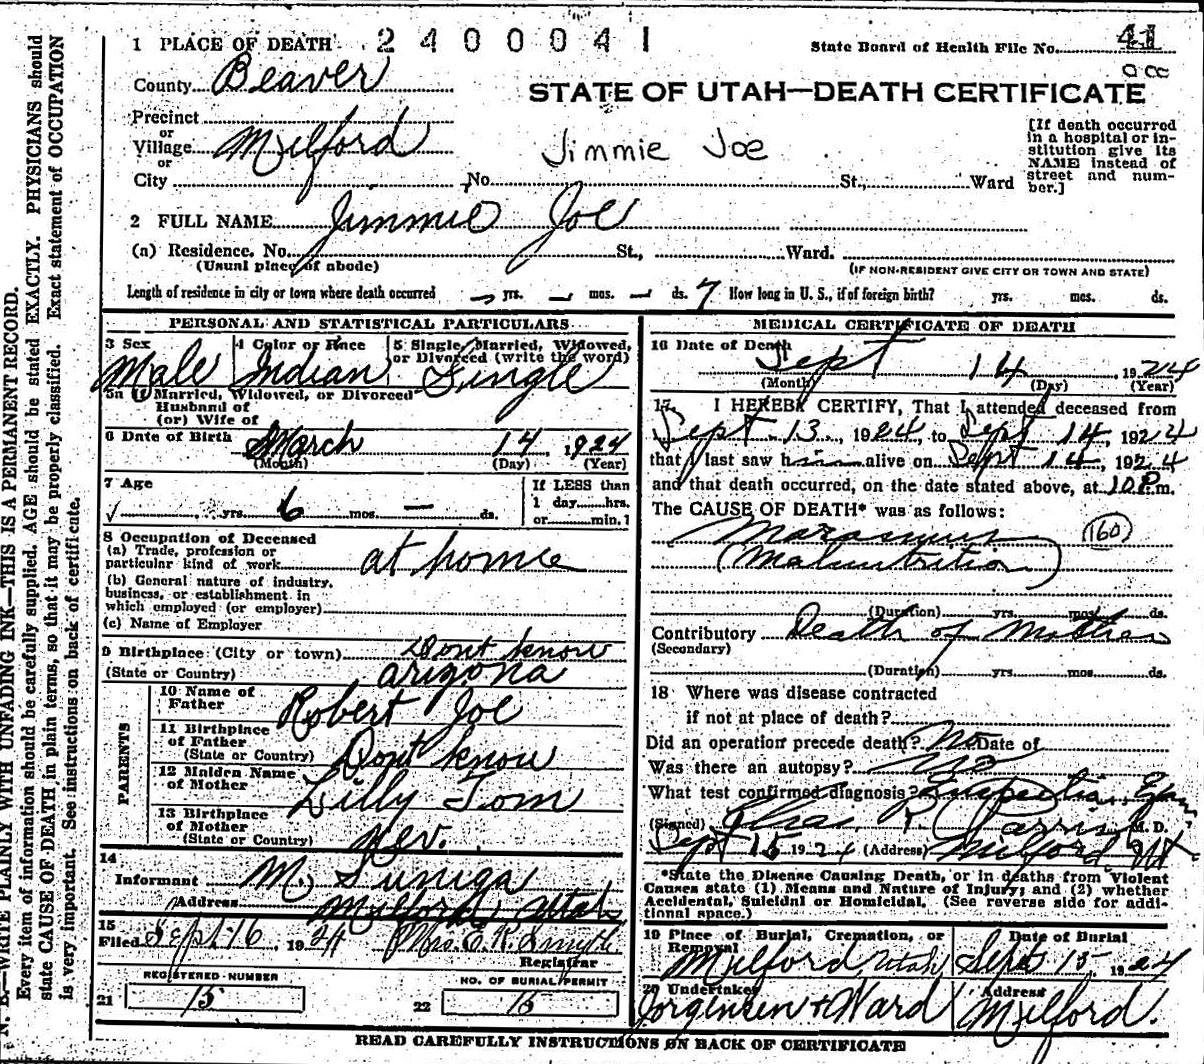 N. B.—WRITE PLAINLY WITH UNFADING INK—THIS IS A PERMANENT RECORD.
Every item of information should be carefully supplied. AGE should be stated EXACTLY. PHYSICIANS should
state CAUSE OF DEATH in plain terms, so that it may be properly classified. Exact statement of OCCUPATION
is very important. See instructions on back of certificate.
1 PLACE OF DEATH 2400041 State Board of Health File No. 41
County Beaver
STATE OF UTAH—DEATH CERTIFICATE
Precinct
or
Village Milford
or
Jimmie Joe
[If death occurred
in a hospital or in-
stitution give its
NAME instead of
street and num-
ber.]
City No. St., Ward
2 FULL NAME Jimmie Joe
(a) Residence. No. St., Ward.
(Usual place of abode) (IF NON-RESIDENT GIVE CITY OR TOWN AND STATE)
Length of residence in city or town where death occurred — yrs. — mos. — ds. 7 How long in U. S., if of foreign birth? yrs. mos. ds.
PERSONAL AND STATISTICAL PARTICULARS
3 Sex 4 Color or Race 5 Single, Married, Widowed,
or Divorced (write the word)
Male Indian Single
5a If Married, Widowed, or Divorced
Husband of
(or) Wife of
6 Date of Birth March 14, 1924
(Month) (Day) (Year)
7 Age If LESS than
1 day hrs.
or min.
yrs. 6 mos. — ds.
8 Occupation of Deceased
(a) Trade, profession or
particular kind of work at home
(b) General nature of industry,
business, or establishment in
which employed (or employer)
(c) Name of Employer
9 Birthplace (City or town) Dont know
(State or Country) arizona
PARENTS
10 Name of
Father Robert Joe
11 Birthplace
of Father
(State or Country) Dont know
12 Maiden Name
of Mother Lilly Tom
13 Birthplace
of Mother
(State or Country) Nev.
14
Informant M. Suniga
Address Milford Utah
15
Filed Sept 16, 1924 Mrs. E. R. Smythe
Registrar
REGISTERED NUMBER NO. OF BURIAL PERMIT
21 15 22 15
MEDICAL CERTIFICATE OF DEATH
16 Date of Death
Sept 14, 1924
(Month) (Day) (Year)
17 I HEREBY CERTIFY, That I attended deceased from
Sept 13, 1924, to Sept 14, 1924
that I last saw him alive on Sept 14, 1924
and that death occurred, on the date stated above, at 10 P.m.
The CAUSE OF DEATH* was as follows:
Marasmus 160
(Malnutrition)
(Duration) yrs. mos. ds.
Contributory Death of Mother
(Secondary)
(Duration) yrs. mos. ds.
18 Where was disease contracted
if not at place of death?
Did an operation precede death? No Date of
Was there an autopsy? No
What test confirmed diagnosis?
(Signed) M. D.
Sept 15, 1924 (Address) Milford Ut.
*State the Disease Causing Death, or in deaths from Violent
Causes state (1) Means and Nature of Injury; and (2) whether
Accidental, Suicidal or Homicidal. (See reverse side for addi-
tional space.)
19 Place of Burial, Cremation, or
Removal Date of Burial
Milford Utah Sept 15, 1924
20 Undertaker Address
Jorgensen + Ward Milford.
READ CAREFULLY INSTRUCTIONS ON BACK OF CERTIFICATE